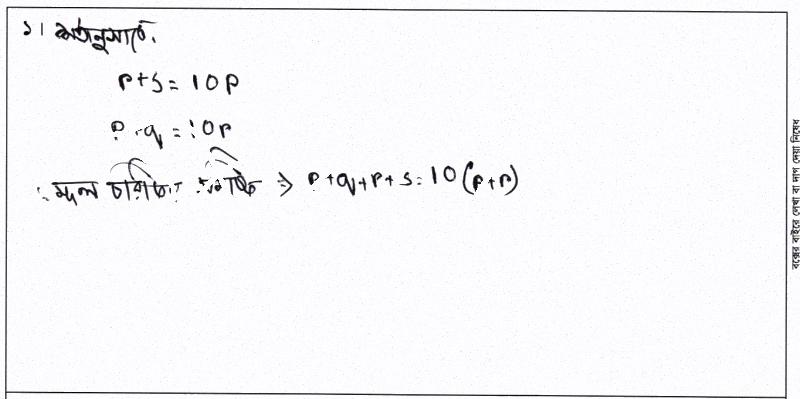 ১। শর্তানুসারে,
r+s = 10p
p+q = 10r
∴ মূল চারটির সমষ্টি ⇒ p+q+r+s = 10(p+r)
বক্সের বাইরে লেখা বা দাগ দেয়া নিষেধ